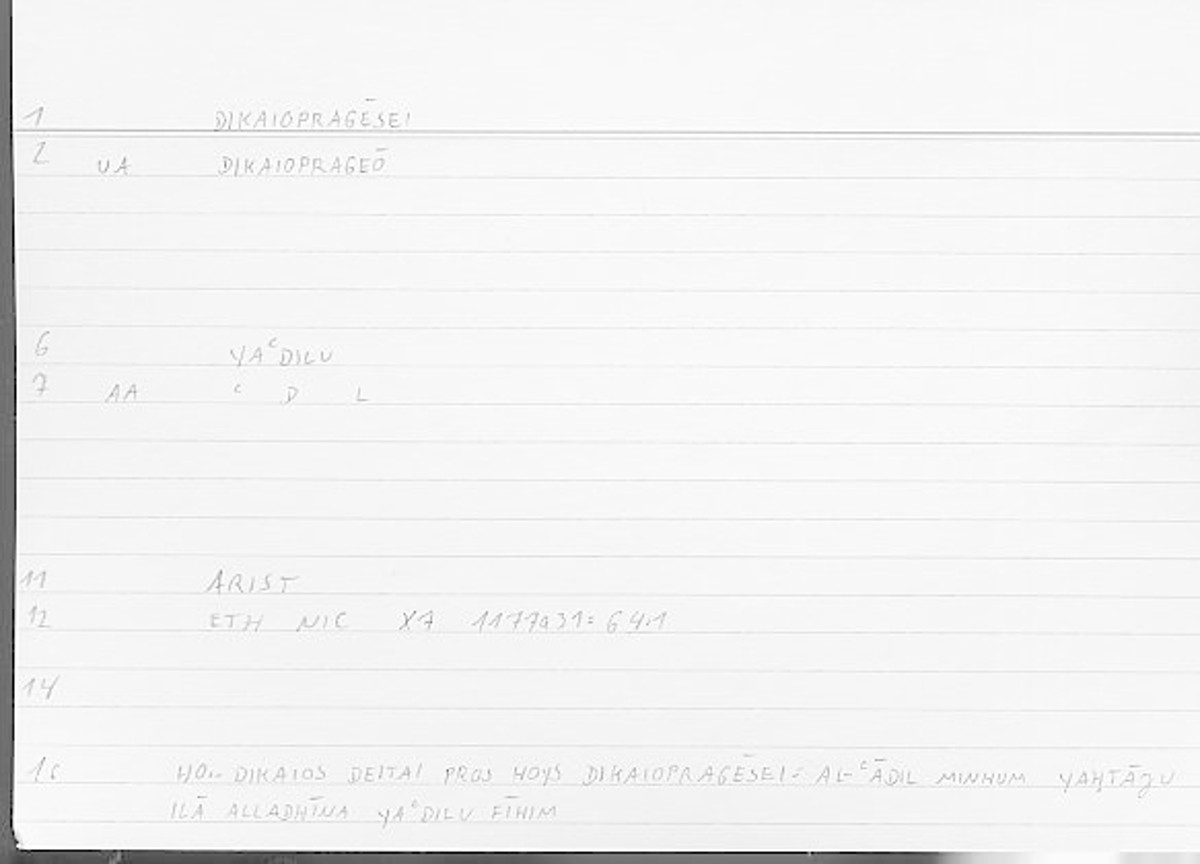 1 DIKAIOPRAGĒSEI
2 UA DIKAIOPRAGEŌ
6 YAᶜDILU
7 AA ᶜ D L
11 ARIST
12 ETH NIC X7 1177a31= 641.1
14
15 HO.. DIKAIOS DEITAI PROS HOYS DIKAIOPRAGĒSEI= AL-ᶜĀDIL MINHUM YAḤTĀǦU
ILĀ ALLADHĪNA YAᶜDILU FĪHIM